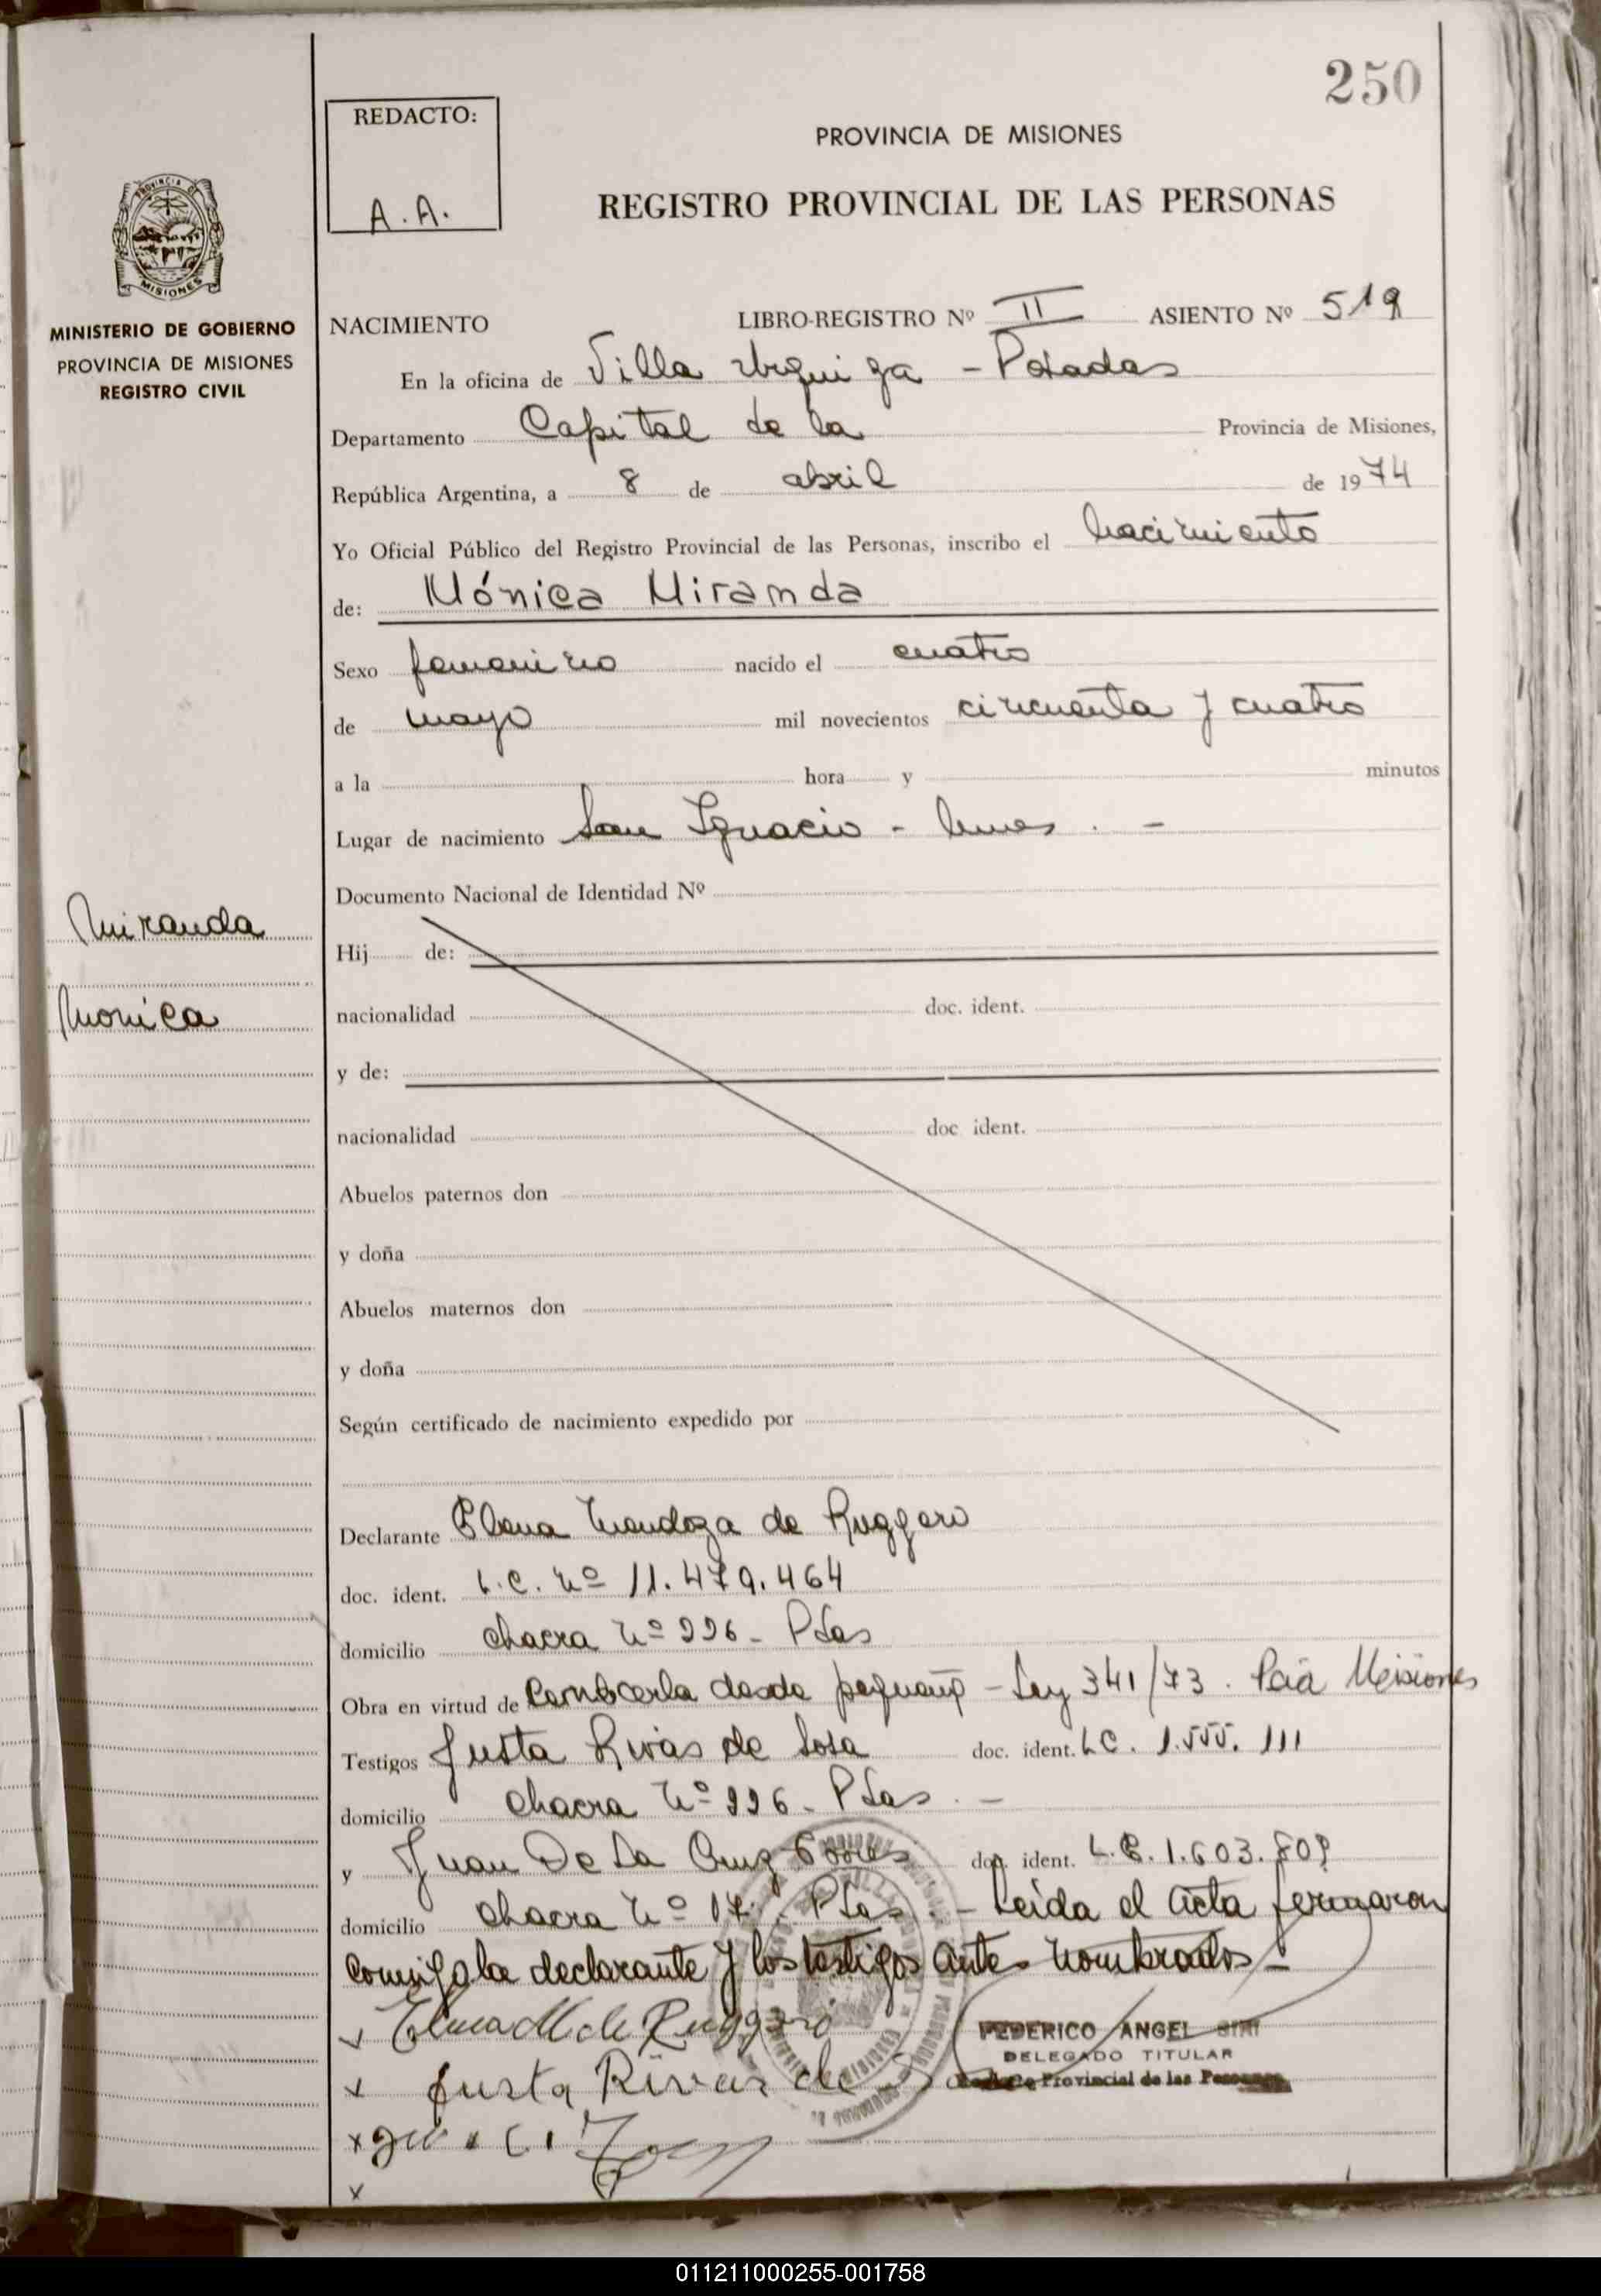 250
REDACTO:
A. A.
PROVINCIA DE MISIONES
REGISTRO PROVINCIAL DE LAS PERSONAS
PROVINCIA DE
MISIONES
MINISTERIO DE GOBIERNO
PROVINCIA DE MISIONES
REGISTRO CIVIL
NACIMIENTO LIBRO-REGISTRO Nº II ASIENTO Nº 519
En la oficina de Villa Urquiza - Posadas
Departamento Capital de la Provincia de Misiones,
República Argentina, a 8 de abril de 1974
Yo Oficial Público del Registro Provincial de las Personas, inscribo el nacimiento
de: Mónica Miranda
Sexo femenino nacido el cuatro
de mayo mil novecientos cincuenta y cuatro
a la hora y minutos
Lugar de nacimiento San Ignacio - . -
Documento Nacional de Identidad Nº
Miranda
Monica
Hij de:
nacionalidad doc. ident.
y de:
nacionalidad doc ident.
Abuelos paternos don
y doña
Abuelos maternos don
y doña
Según certificado de nacimiento expedido por
Declarante Elena Mendoza de Ruggero
doc. ident. L.C. Nº 11.479.464
domicilio chacra Nº 226 - Pdas
Obra en virtud de conocerla desde pequeña - Ley 341/73. Pcia Misiones
Testigos Justa Rivas de Sosa doc. ident. LC. 1.555.111
domicilio chacra Nº 226 - Pdas. -
y Juan De La Cruz doc. ident. L.E. 1.603.
domicilio chacra Nº 17 Pdas. - Leida el acta firmaron
consigo la declarante y los testigos antes nombrados -
Elena M de Ruggero
Justa Rivas de S
FEDERICO ANGEL
DELEGADO TITULAR
Provincial de las Personas
x
011211000255-001758